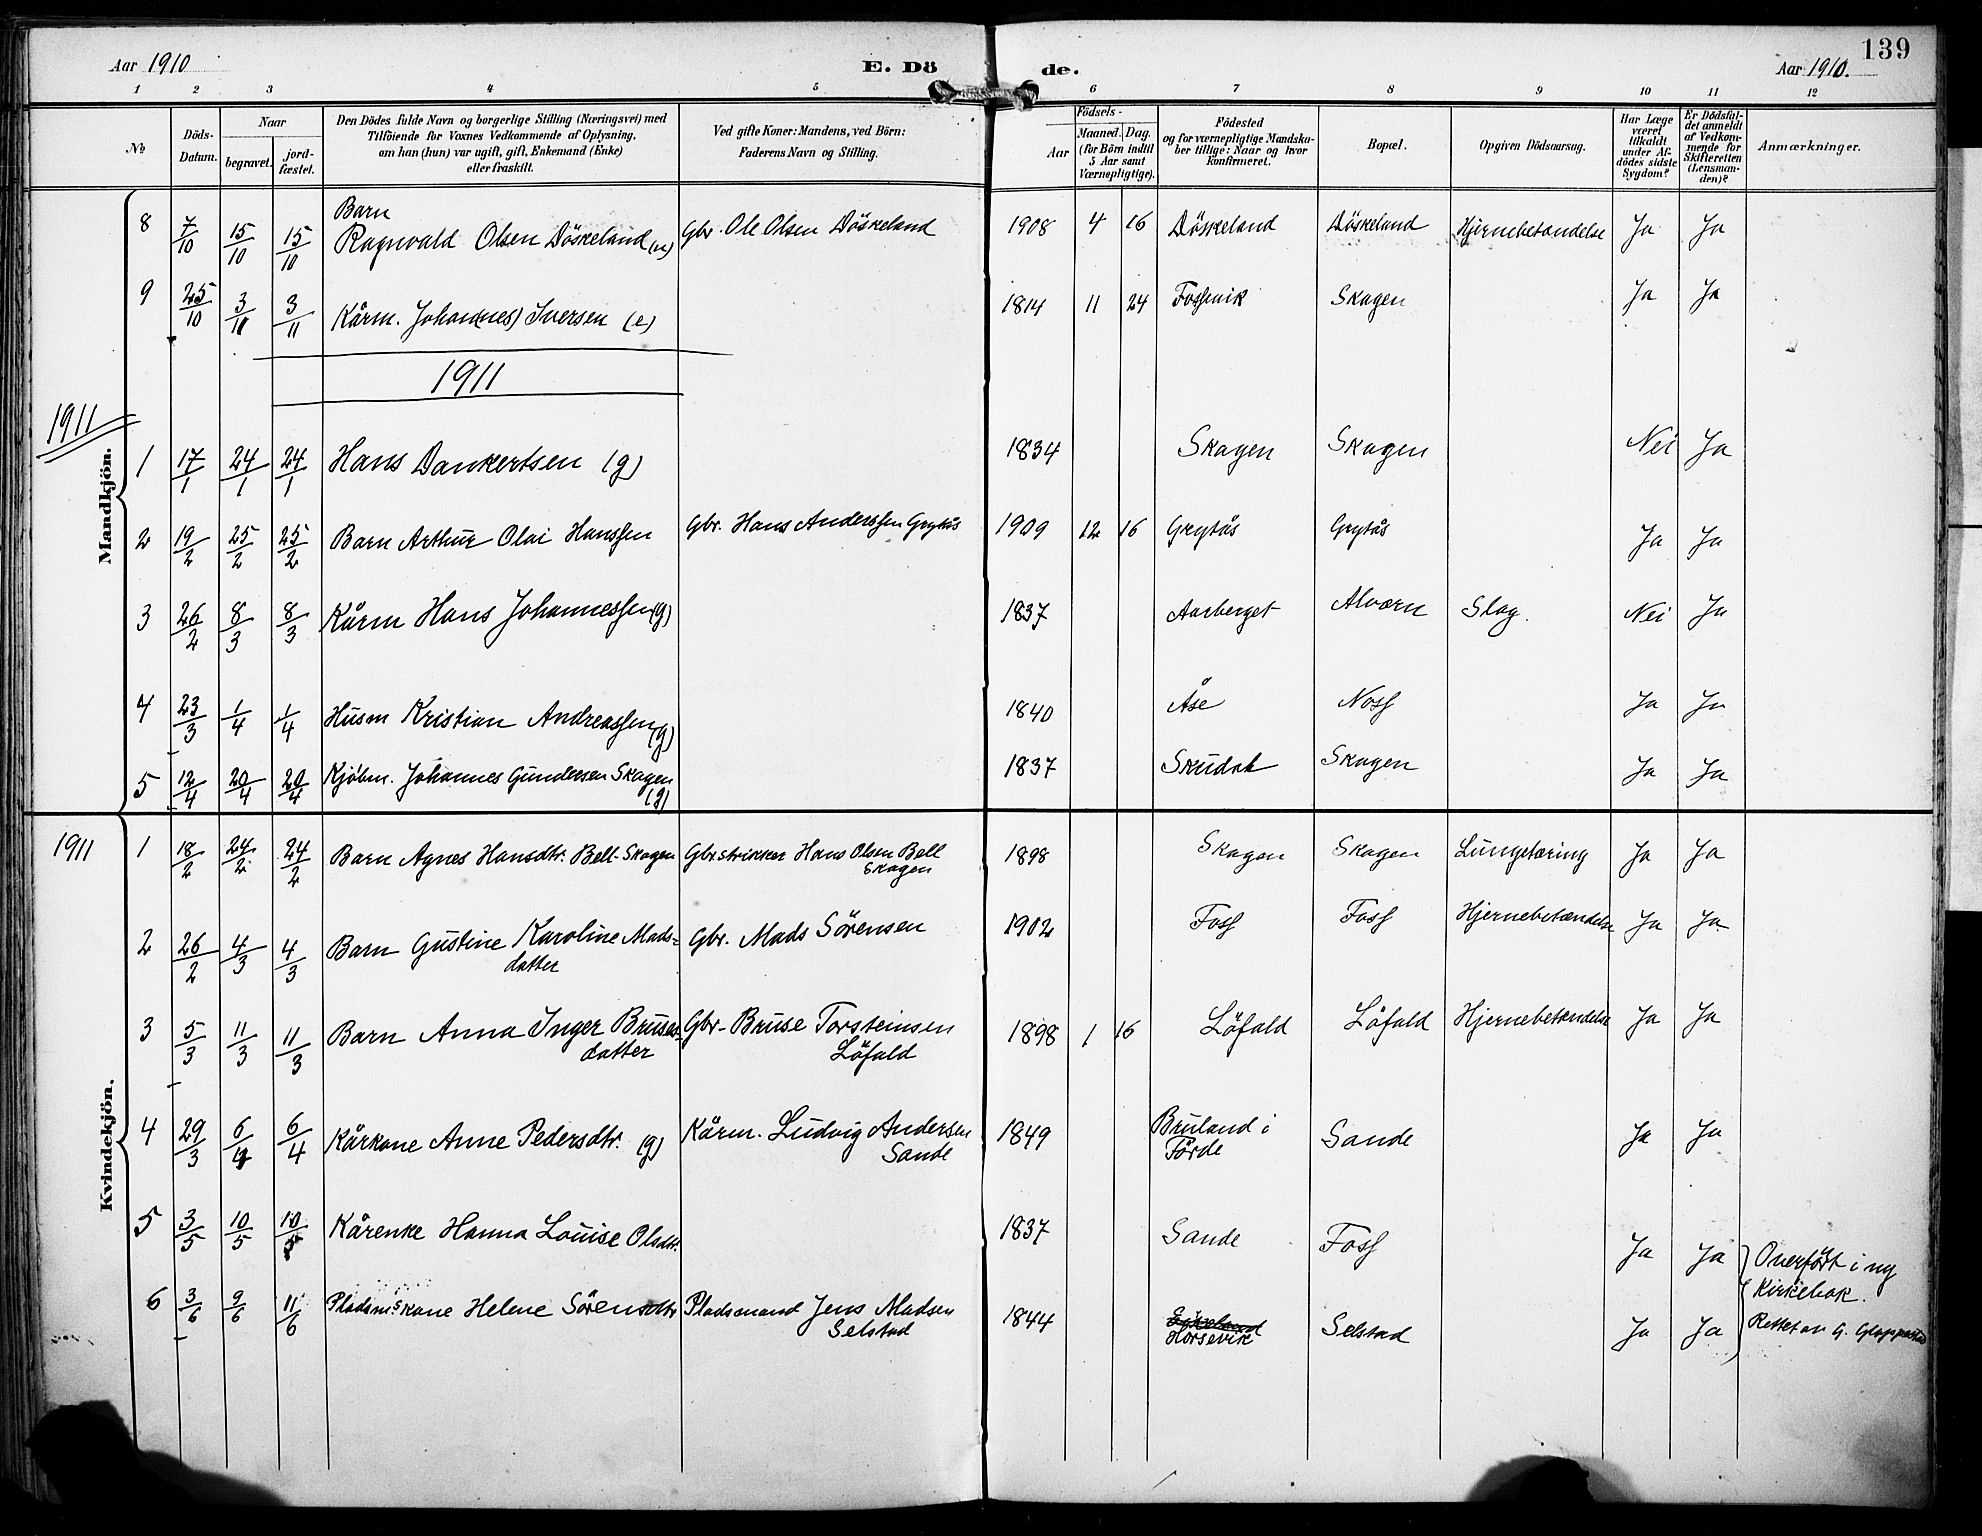 139
Aar 1910 E. Dö de. Aar 1910.
1 2 3 4 5 6 7 8 9 10 11 12
No Döds-Datum. Naar begravet. jord-fæstet. Den Dödes fulde Navn og borgerlige Stilling (Næringsvei) med Tilföiende for Voxnes Vedkommende af Oplysning, om han (hun) var ugift, gift, Enkemand (Enke) eller fraskilt. Ved gifte Koner: Mandens, ved Börn: Faderens Navn og Stilling. Födsels- Aar Maaned. Dag. (for Börn indtil 5 Aar samt Værnepligtige). Födested og for værnepligtige Mandskaber tillige: Naar og hvor Konfirmeret. Bopæl. Opgiven Dödsaarsag. Har Læge været tilkaldt under Afdödes sidste Sygdom? Er Dödsfaldet anmeldt af Vedkommende for Skifteretten (Lensmanden)? Anmærkninger.
Mandkjön.
8 7/10 15/10 15/10 Barn Ragnvald Olsen Döskeland (u) Gbr. Ole Olsen Döskeland 1908 4 16 Döskeland Döskeland Hjernebetændelse Ja Ja
9 25/10 3/11 3/11 Kårm. Johan(nes) Iversen (e) 1814 11 24 Fossevik Skagen Ja Ja
1911
1911
1 17/1 24/1 24/1 Hans Dankertsen (g) 1834 Skagen Skagen Nei Ja
2 19/2 25/2 25/2 Barn Arthur Olai Hanssen Gbr. Hans Anderssen Grytås 1909 12 16 Grytås Grytås Ja Ja
3 26/2 8/3 8/3 Kårm Hans Johannessen (g) 1837 Aarberget Alværn Slag. Nei Ja
4 23/3 1/4 1/4 Husm Kristian Andreassen (g) 1840 Åse Noss Ja Ja
5 12/4 20/4 20/4 Kjöbm. Johannes Gundersen Skagen (g) 1837 Skudal Skagen Ja Ja
1911
Kvindekjön.
1 18/2 24/2 24/2 Barn Agnes Hansdtr. Bell-Skagen Gbrstrikker Hans Olsen Bell Skagen 1898 Skagen Skagen Lungetæring Ja Ja
2 26/2 4/3 4/3 Barn Gustine Karoline Mads-datter Gbr. Mads Sörensen 1902 Foss Foss Hjernebetændelse Ja Ja
3 5/3 11/3 11/3 Barn Anna Inger Bruse-datter Gbr. Bruse Torsteinsen Löfald 1898 1 16 Löfald Löfald Hjernebetændelse Ja Ja
4 29/3 6/4 6/4 Kårkone Anne Pedersdtr. (g) Kårm. Ludvig Andersen Sande 1849 Bruland i Förde Sande Ja Ja
5 3/5 10/5 10/5 Kårenke Hanna Louise Olsdtr. 1837 Sande Foss Ja Ja Overfört i ny
6 3/6 9/6 11/6 Pladsmskone Helene Sörensdtr Pladsmand Jens Madsen Selstad 1844 Horsevik Selstad Ja Ja Kirkebok.
Rettet av G.